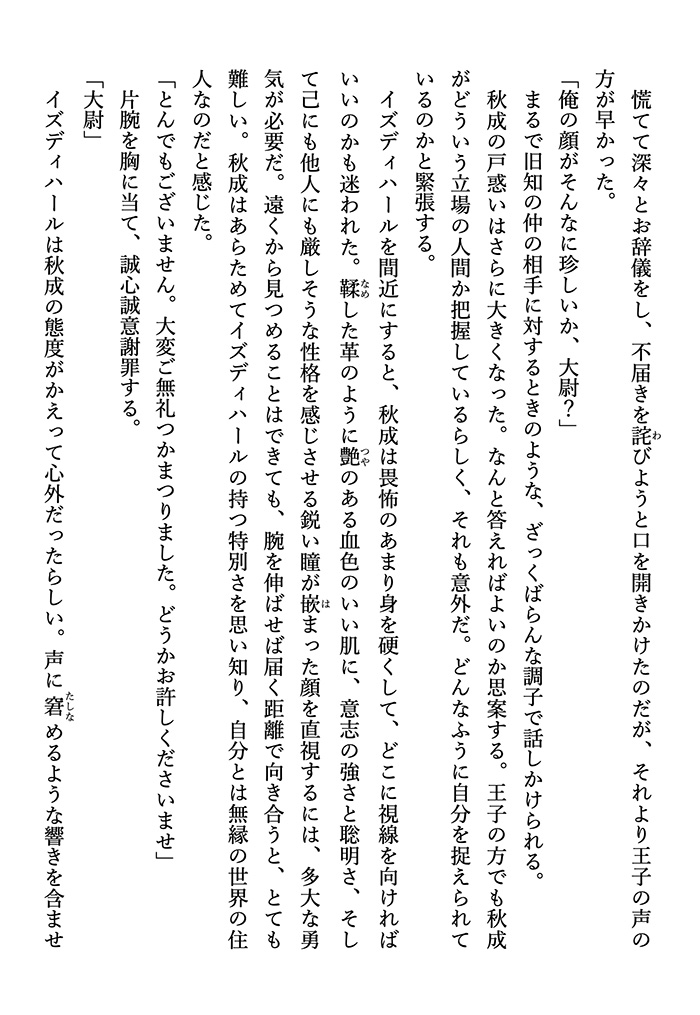 慌てて深々とお辞儀をし、不届きを詫びようと口を開きかけたのだが、それより王子の声の
方が早かった。
「俺の顔がそんなに珍しいか、大尉？」
まるで旧知の仲の相手に対するときのような、ざっくばらんな調子で話しかけられる。
秋成の戸惑いはさらに大きくなった。なんと答えればよいのか思案する。王子の方でも秋成
がどういう立場の人間か把握しているらしく、それも意外だ。どんなふうに自分を捉えられて
いるのかと緊張する。
イズディハールを間近にすると、秋成は畏怖のあまり身を硬くして、どこに視線を向ければ
いいのかも迷われた。鞣した革のように艶のある血色のいい肌に、意志の強さと聡明さ、そし
て己にも他人にも厳しそうな性格を感じさせる鋭い瞳が嵌まった顔を直視するには、多大な勇
気が必要だ。遠くから見つめることはできても、腕を伸ばせば届く距離で向き合うと、とても
難しい。秋成はあらためてイズディハールの持つ特別さを思い知り、自分とは無縁の世界の住
人なのだと感じた。
「とんでもございません。大変ご無礼つかまつりました。どうかお許しくださいませ」
片腕を胸に当て、誠心誠意謝罪する。
「大尉」
イズディハールは秋成の態度がかえって心外だったらしい。声に窘めるような響きを含ませ